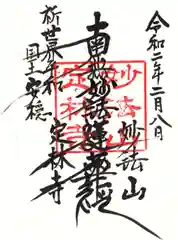 令和二年二月八日
妙法山
南無妙法蓮華経
定林寺
祈世界平和
国土安穏